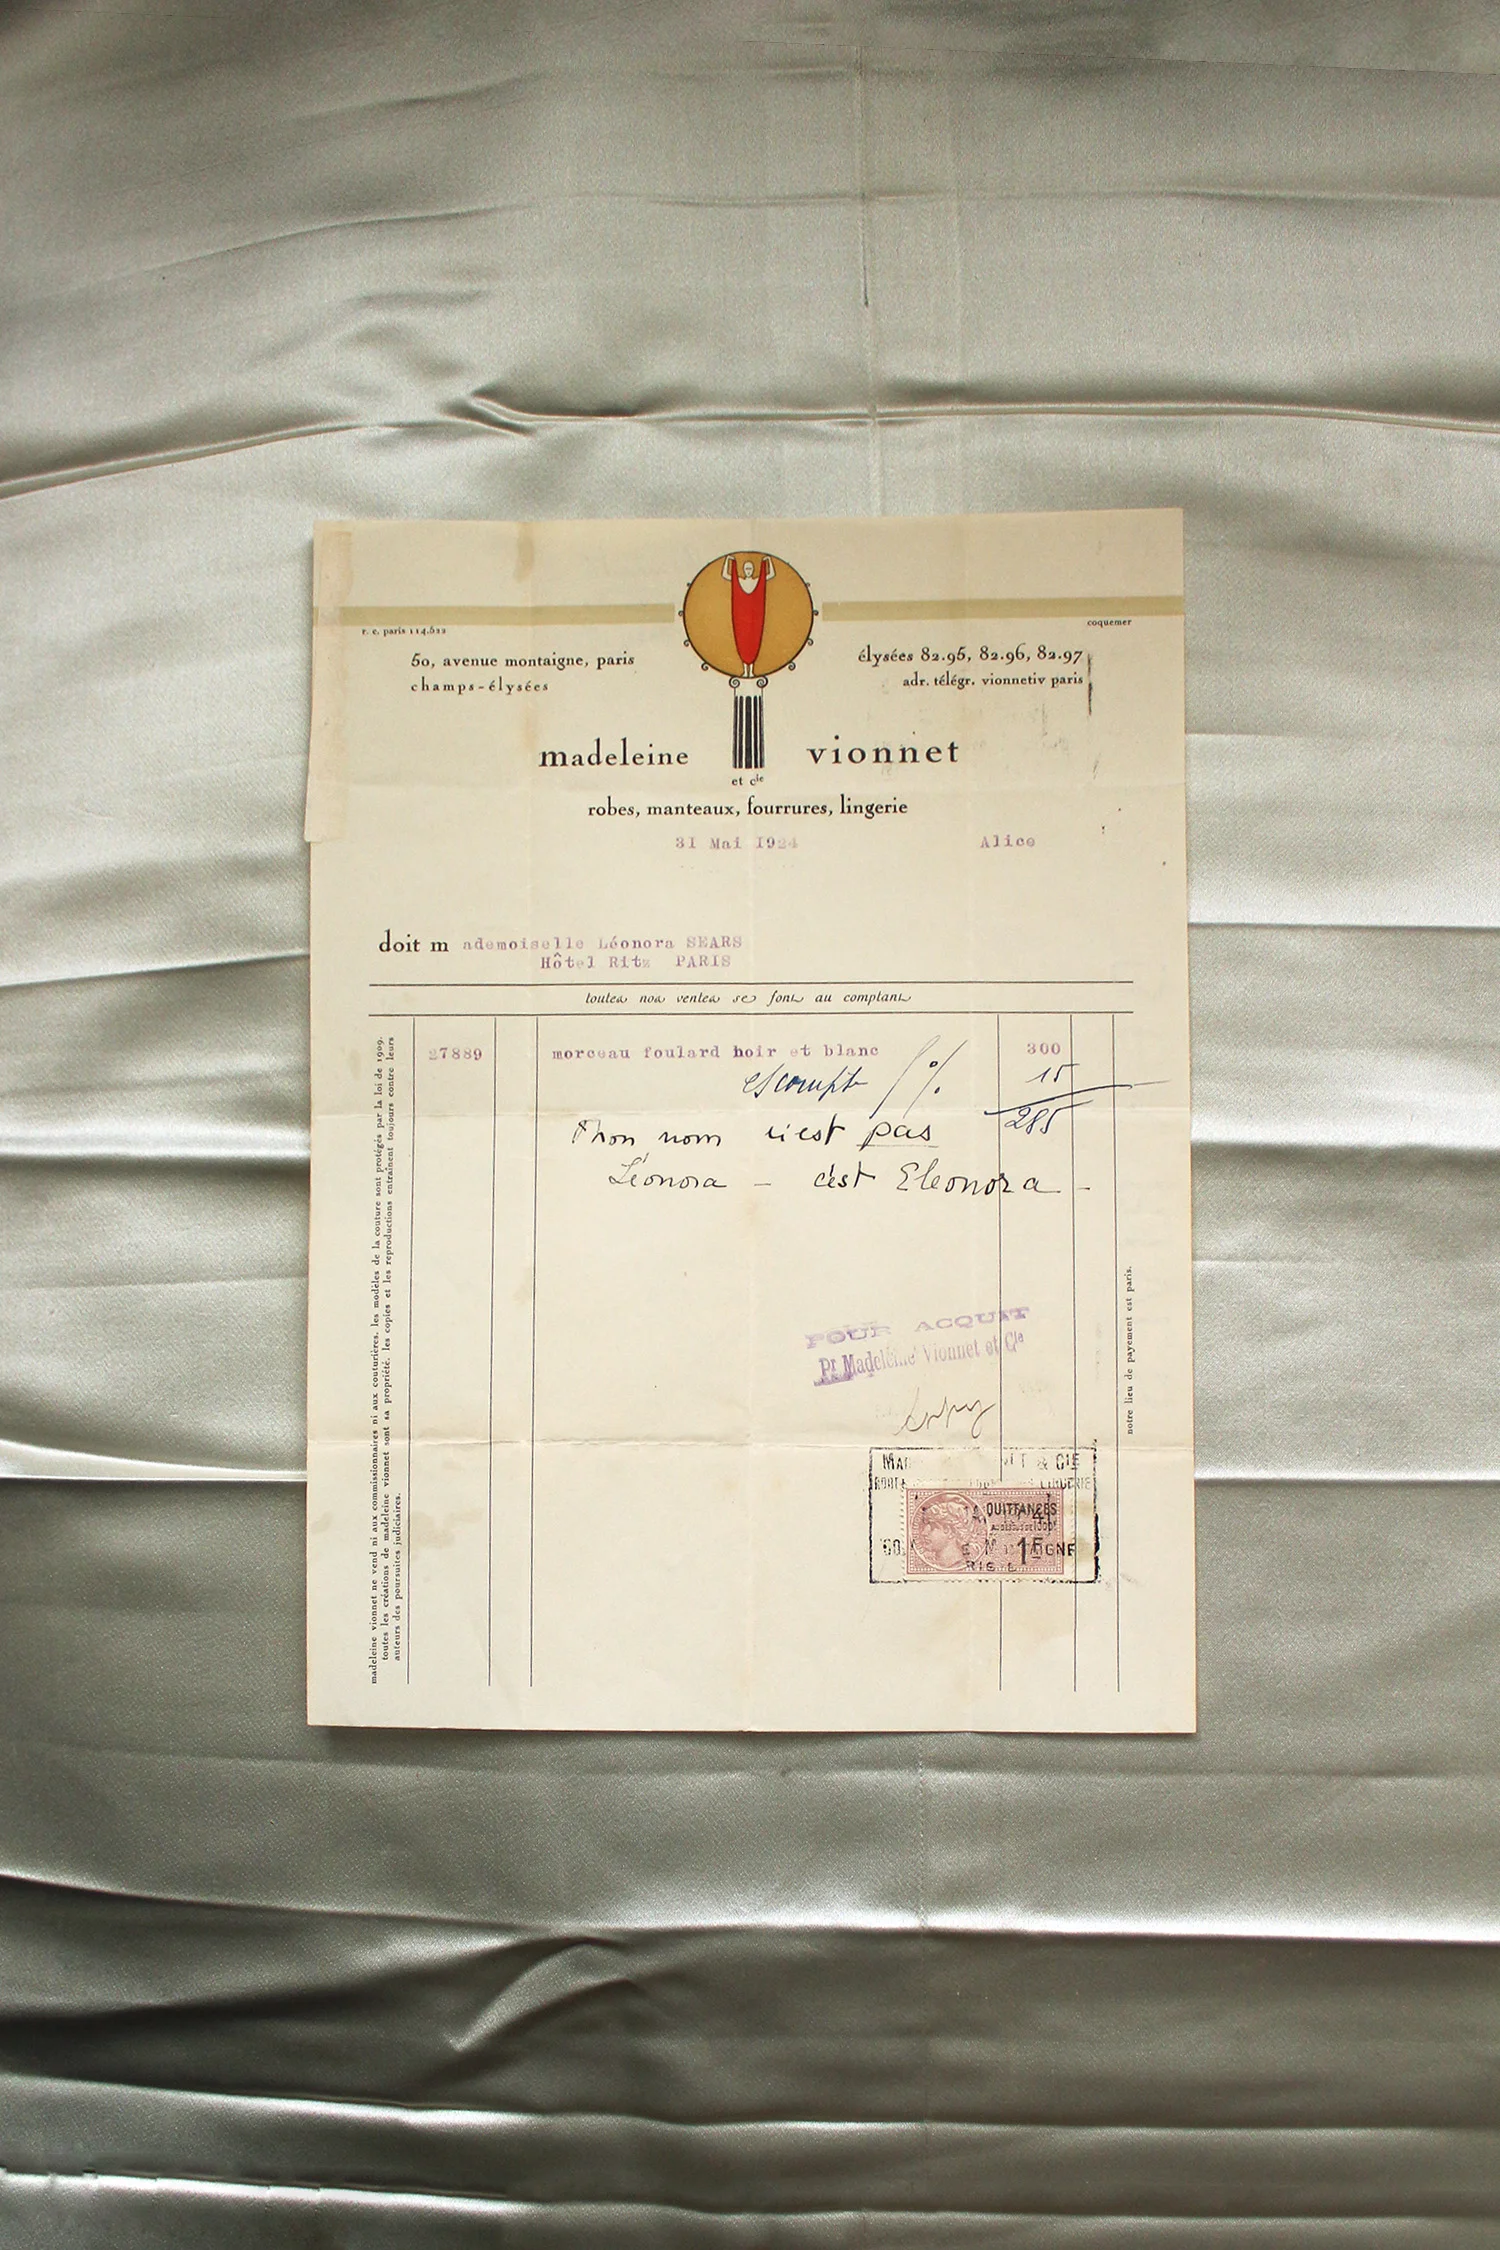 r. c. paris 114.622
coquemer
50, avenue montaigne, paris
champs-élysées
élysées 82.95, 82.96, 82.97
adr. télégr. vionnetiv paris
madeleine vionnet
et cie
robes, manteaux, fourrures, lingerie
31 Mai 1924 Alice
doit m ademoiselle Léonora SEARS
Hôtel Ritz PARIS
toutes nos ventes se font au comptant
27889 morceau foulard noir et blanc 300
escompte % 15
285
Mon nom n'est pas
Léonora – c'est Eleonora –
madeleine vionnet ne vend ni aux commissionnaires ni aux couturières. les modèles de la couture sont protégés par la loi de 1909.
toutes les créations de madeleine vionnet sont sa propriété. les copies et les reproductions entraînent toujours contre leurs
auteurs des poursuites judiciaires.
notre lieu de payement est paris.
POUR ACQUIT
Pr Madeleine Vionnet et Cie
& CIE
LINGERIE
QUITTANCES
1F